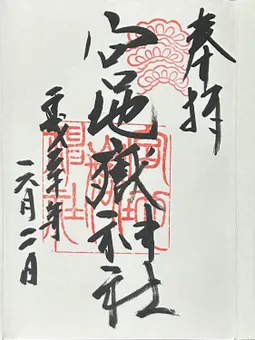 奉拝
宮地嶽神社
平成三十年
六月二日